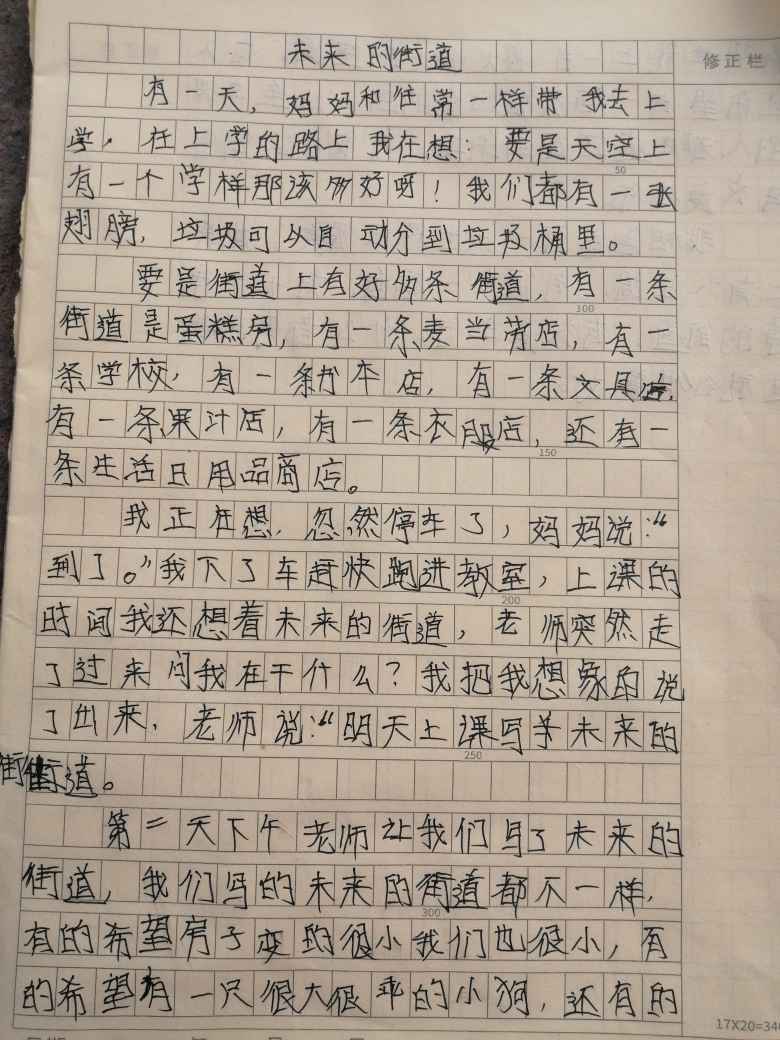 未来的街道
修正栏
有一天，妈妈和往常一样带我去上
学，在上学的路上我在想：要是天空上
50
有一个学样那该多好呀！我们都有一张
翅膀，垃圾可以自动分到垃圾桶里。
要是街道上有好多条街道，有一条
100
街道是蛋糕房，有一条麦当劳店，有一
条学校，有一条书本店，有一条文具店，
有一条果汁店，有一条衣服店，还有一
150
条生活日用品商店。
我正在想，忽然停车了，妈妈说：“
到了。”我下了车赶快跑进教室，上课的
200
时间我还想着未来的街道，老师突然走
了过来问我在干什么？我把我想象的说
了出来，老师说：“明天上课写学未来的
250
街街道。
第二天下午老师让我们写了未来的
街道，我们写的未来的街道都不一样，
300
有的希望房子变的很小我们也很小，有
的希望有一只很大很乖的小狗，还有的
17X20=340